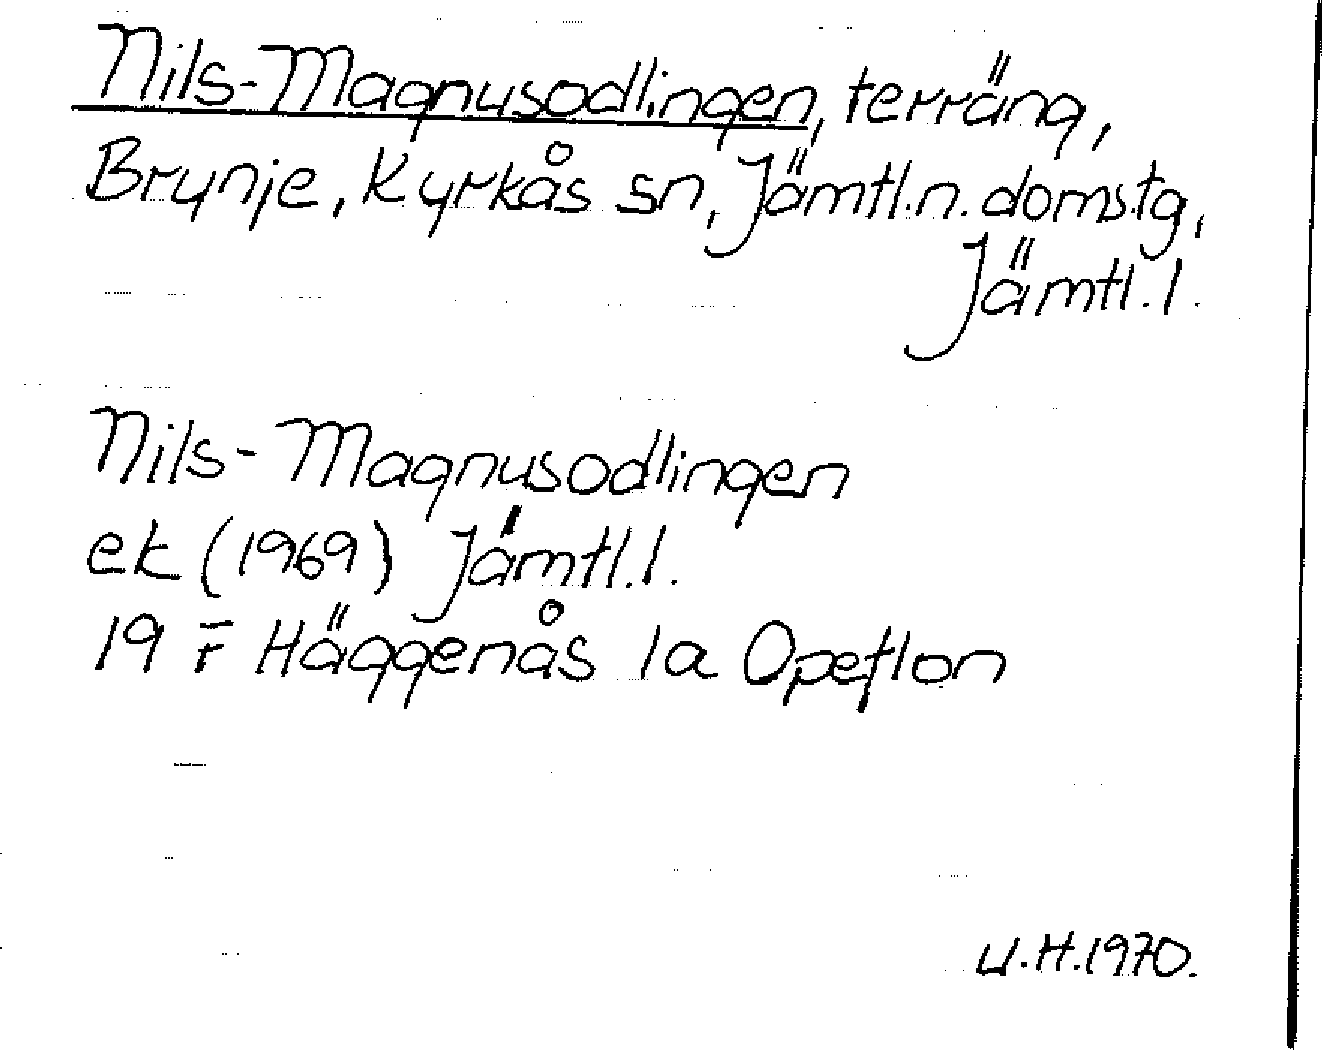 Nils-Magnusodlingen, terräng,
Brynje, Kyrkås sn, Jämtl.n. domstg,
Jämtl.l.
Nils-Magnusodlingen
ek (1969) Jämtl.l.
19 F Häggenås 1a Opeflon
U.H.1970.